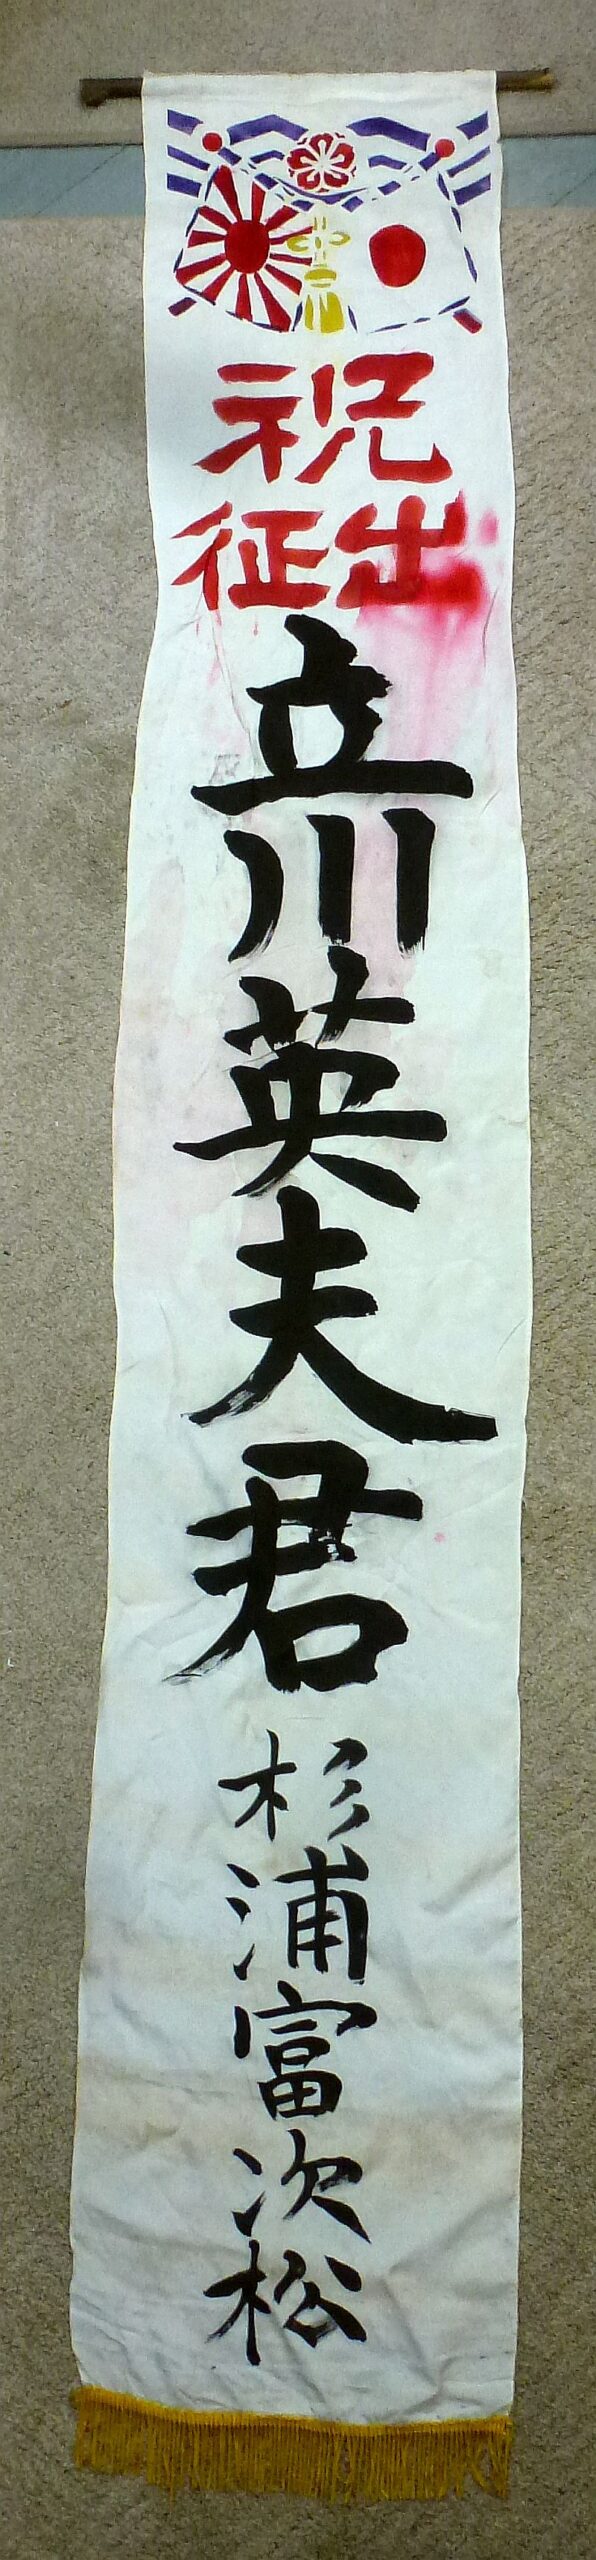 祝
出征
立川英夫君
杉浦富次松